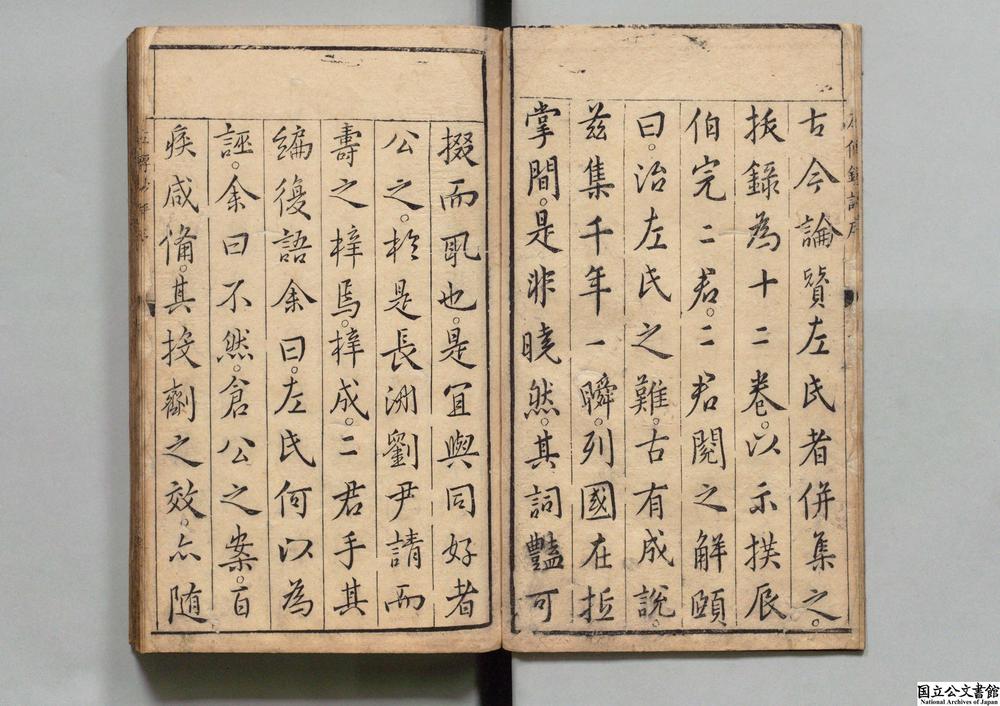 古今論贊左氏者併集之。
抜錄為十二卷。以示拱辰
伯完二君。二君閱之解頤
曰。治左氏之難。古有成說。
茲集千年一瞬。列國在指
掌間。是非曉然。其詞豔可
掇而
也。是宜與同好者
公之。於是長洲劉尹請而
壽之梓焉。梓成。二君手其
編復語余曰。左氏何以為
誣。余曰不然。倉公之案。百
疾咸備。其投劑之效。亦随
国立公文書館
National Archives of Japan